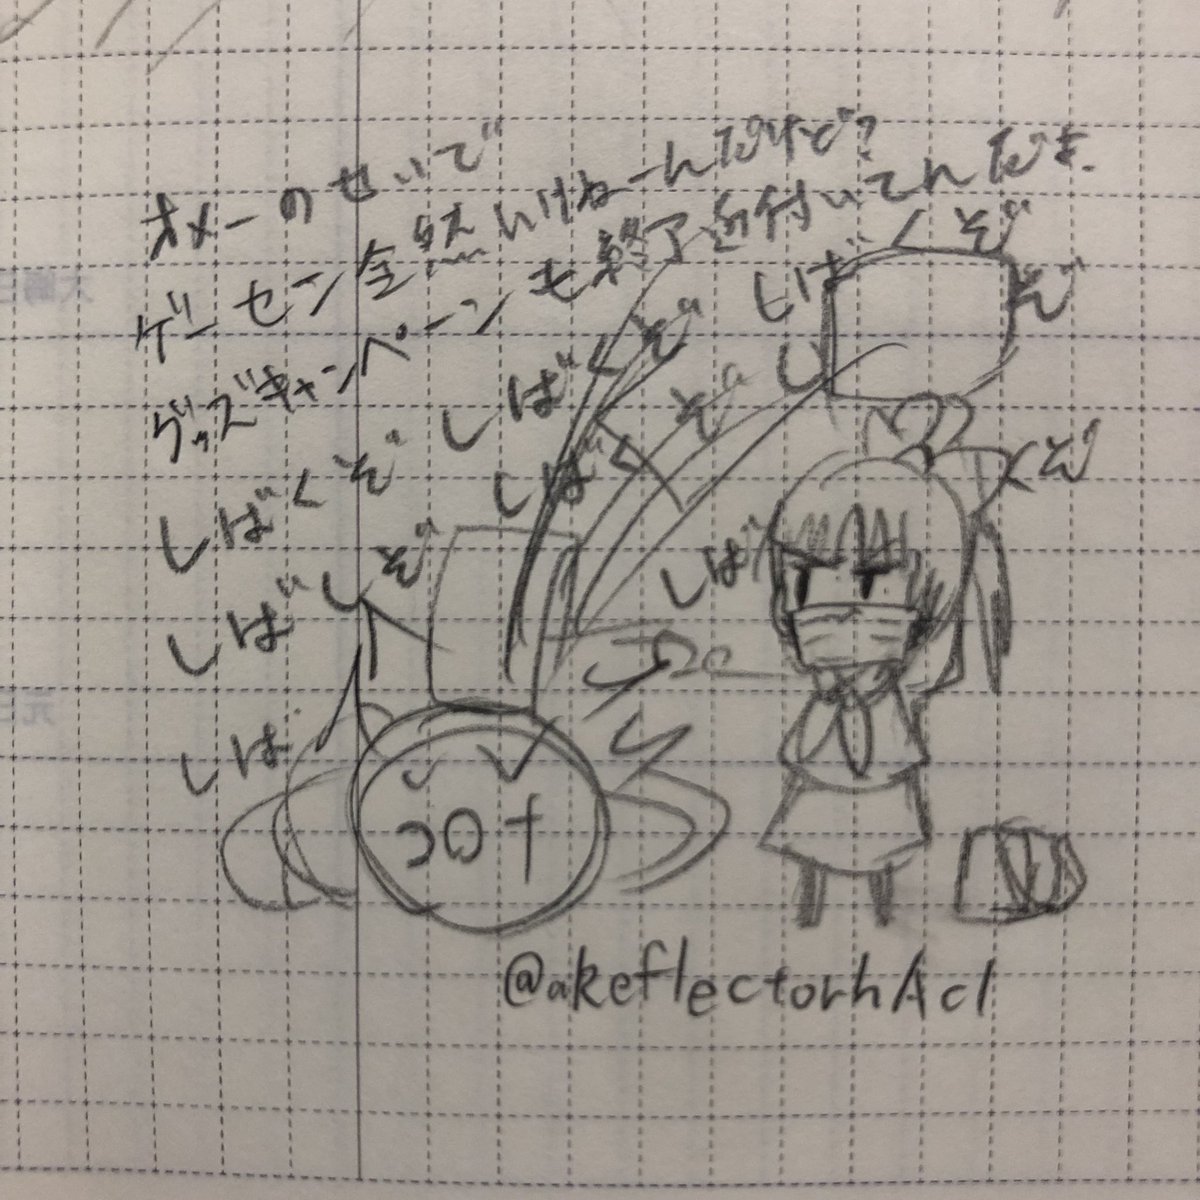 オメーのせいで
ゲーセン全然いけねーんだけど?
グッズキャンペーンも終了近付いてんだよ.
しばくぞ
しばくぞ
しばくぞ
しばくぞ
しばしぞ
しば
しば
くぞ
ぞ
し
しば
くぞ
コロナ
@akeflectorhAcl